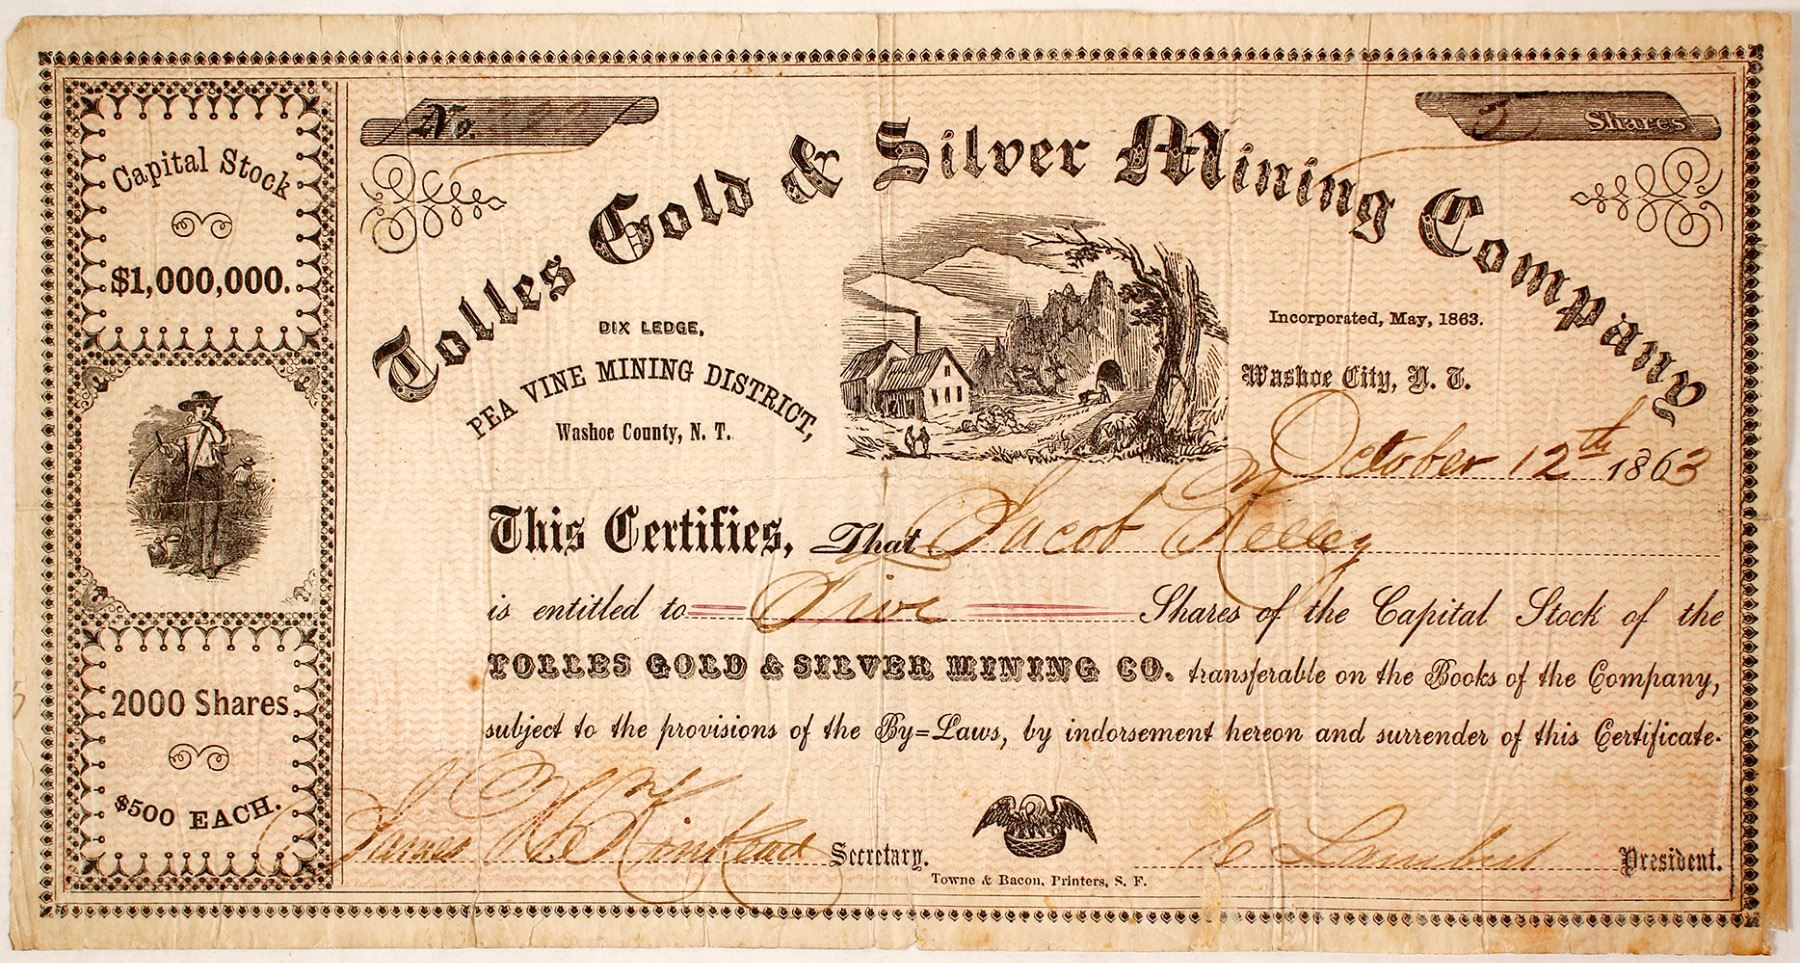 Capital Stock
$1,000,000.
2000 Shares
$500 EACH.
No.
5 Shares
Tolles Gold & Silver Mining Company
DIX LEDGE,
PEA VINE MINING DISTRICT,
Washoe County, N. T.
Incorporated, May, 1863.
Washoe City, N. T.
October 12th 1863
This Certifies, That Jacob Kelley
is entitled to Five Shares of the Capital Stock of the
TOLLES GOLD & SILVER MINING CO. transferable on the Books of the Company,
subject to the provisions of the By=Laws, by indorsement hereon and surrender of this Certificate.
James H. Kinkead Secretary.
C Lambert President.
Towne & Bacon, Printers, S. F.